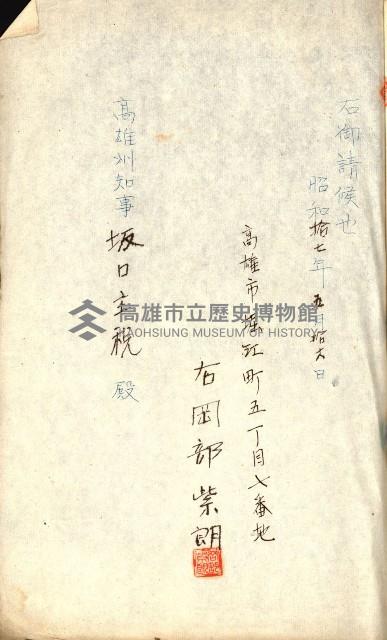 右御請候也
昭和拾七年五月拾六日
高雄市堀江町五丁目七番地
右岡部紫朗
高雄州知事 坂口主税 殿
高雄市立歷史博物館
KAOHSIUNG MUSEUM OF HISTORY